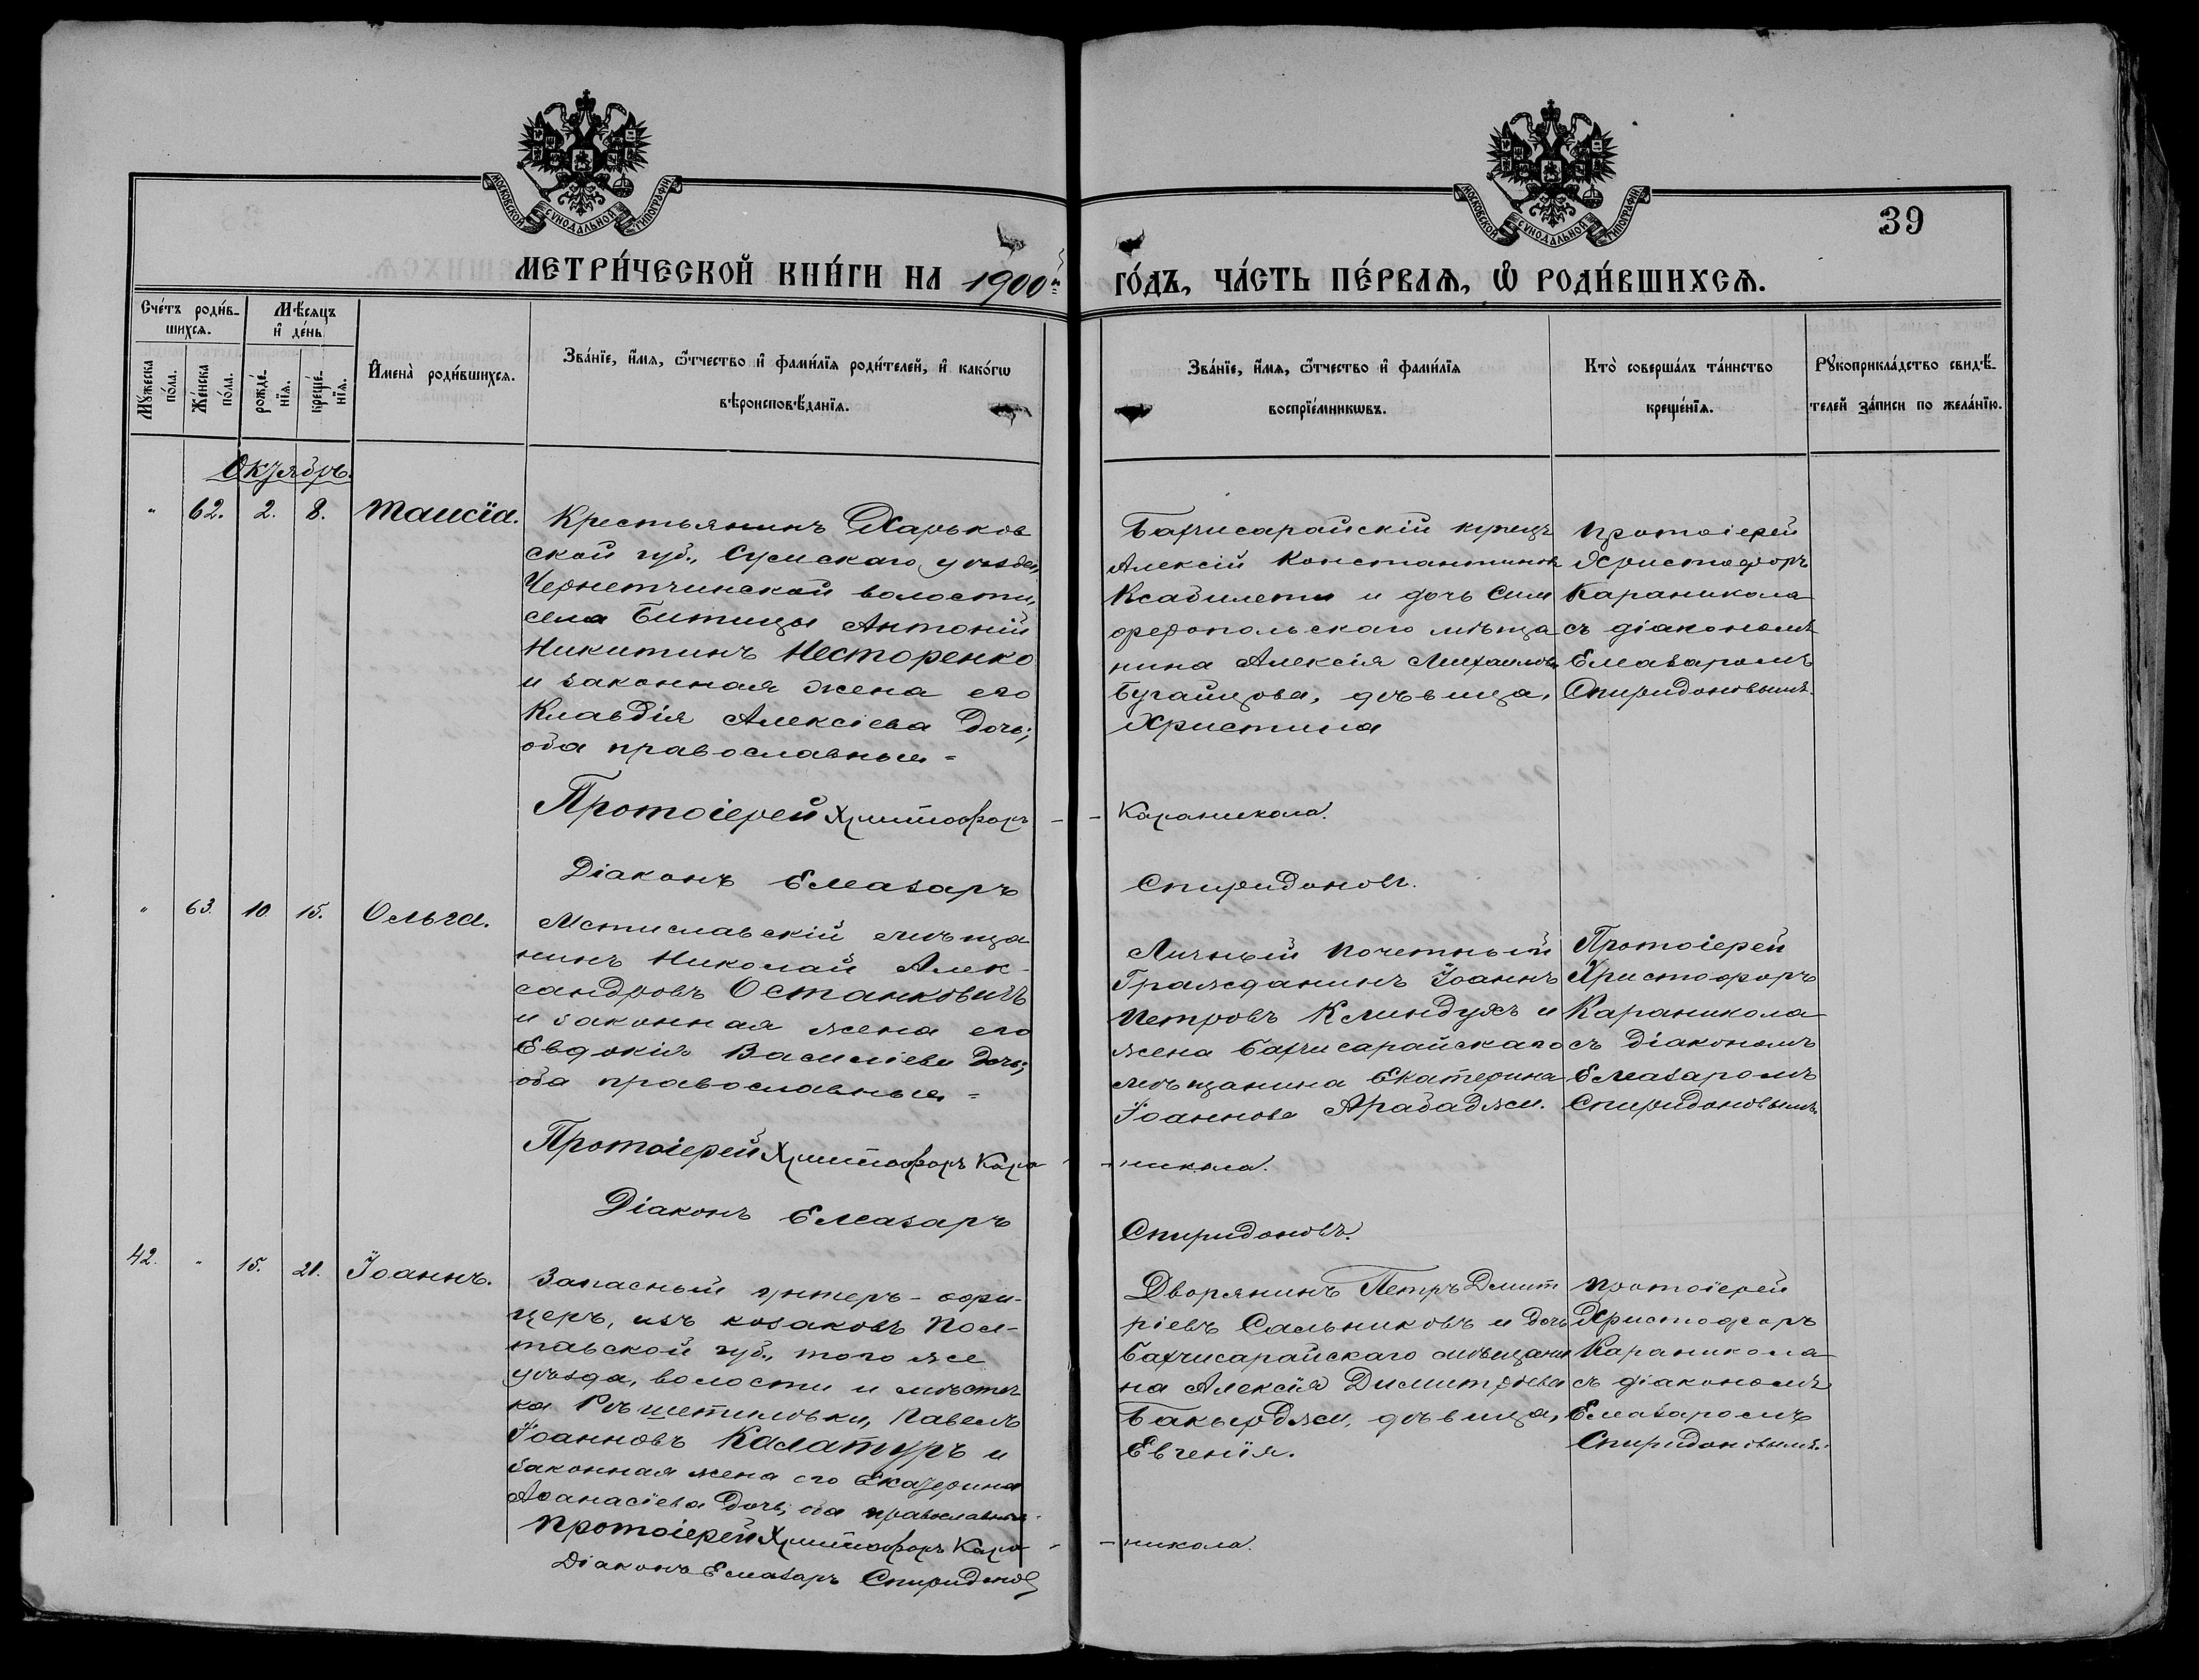 МОСКОВСКОЙ СѴНОДАЛЬНОЙ ТИПОГРАФІИ
МОСКОВСКОЙ СѴНОДАЛЬНОЙ ТИПОГРАФІИ
39
МЕТРИ́ЧЕСКОЙ КНИ́ГИ НА 1900й ГО́ДЪ, ЧА́СТЬ ПЕ́РВАѦ, Ѡ҆ РОДИ́ВШИХСѦ.
Сче́тъ роди́в-
шихсѧ.
Мꙋ́жеска
по́ла.
Же́нска
по́ла.
Мѣ́сѧцъ
и҆ де́нь
рожде́-
нїѧ.
креще́-
нїѧ.
И҆мена̀ роди́вшихсѧ.
Зва́нїе, и҆́мѧ, ѻ҆́тчество и҆ фами́лїѧ роди́телей, и҆ како́гѡ
вѣроисповѣ́данїѧ.
Зва́нїе, и҆́мѧ, ѻ҆́тчество и҆ фами́лїѧ
воспрїе́мникѡвъ.
Кто̀ соверша́лъ та́инство
креще́нїѧ.
Рꙋкоприкла́дство свидѣ́-
телей за́писи по жела́нїю.
Октябрь.
" 62. 2. 8. Таисія.
Крестьянинъ Харьков
ской губ., Сумскаго уѣзда,
Чернетчинской волости,
села Битицы Антоній
Никитинъ Несторенко
и законная жена его
Клавдія Алексіева дочь;
оба православные =
Бахчисарайскій купецъ
Алексій Константинов
Ксабилети и дочь Сим
феропольскаго мѣща
нина Алексія Михаилова
Бугайцова, дѣвица,
Христина
Протоіерей
Христофоръ
Караникола
съ діакономъ
Елеазаромъ
Спиридоновымъ.
Протоіерей Христофоръ - - Караникола.
Діаконъ Елеазаръ Спиридоновъ.
" 63. 10. 15. Ольга.
Мстиславскій мѣща
нинъ Николай Алек-
сандровъ Останковичъ
и законная жена его
Евдокія Василіева дочь;
оба православные =
Личный почетный
Гражданинъ Іоаннъ
Петровъ Клиндухъ и
жена Бахчисарайскаго
мѣщанина Екатерина
Іоаннова Арабаджи.
Протоіерей
Христофоръ
Караникола
съ діакономъ
Елеазаромъ
Спиридоновымъ.
Протоіерей Христофоръ Кара - - никола.
Діаконъ Елеазаръ Спиридоновъ.
42. " 15. 21. Іоаннъ.
Запасный унтеръ-офи-
церъ, изъ козаковъ Пол-
тавской губ., того же
уѣзда, волости и мѣстеч
ка Рѣшетиловки, Павелъ
Іоанновъ Калатуръ и
законная жена его Екатерина
Афанасіева дочь; оба православные.
Дворянинъ Петръ Дмит
ріевъ Сальниковъ и дочь
Бахчисарайскаго мѣщани
на Алексія Димитріева
Бакырджи, дѣвица,
Евгенія.
Протоіерей
Христофоръ
Караникола
съ діакономъ
Елеазаромъ
Спиридоновымъ.
Протоіерей Христофоръ Кара - - никола.
Діаконъ Елеазаръ Спиридоновъ